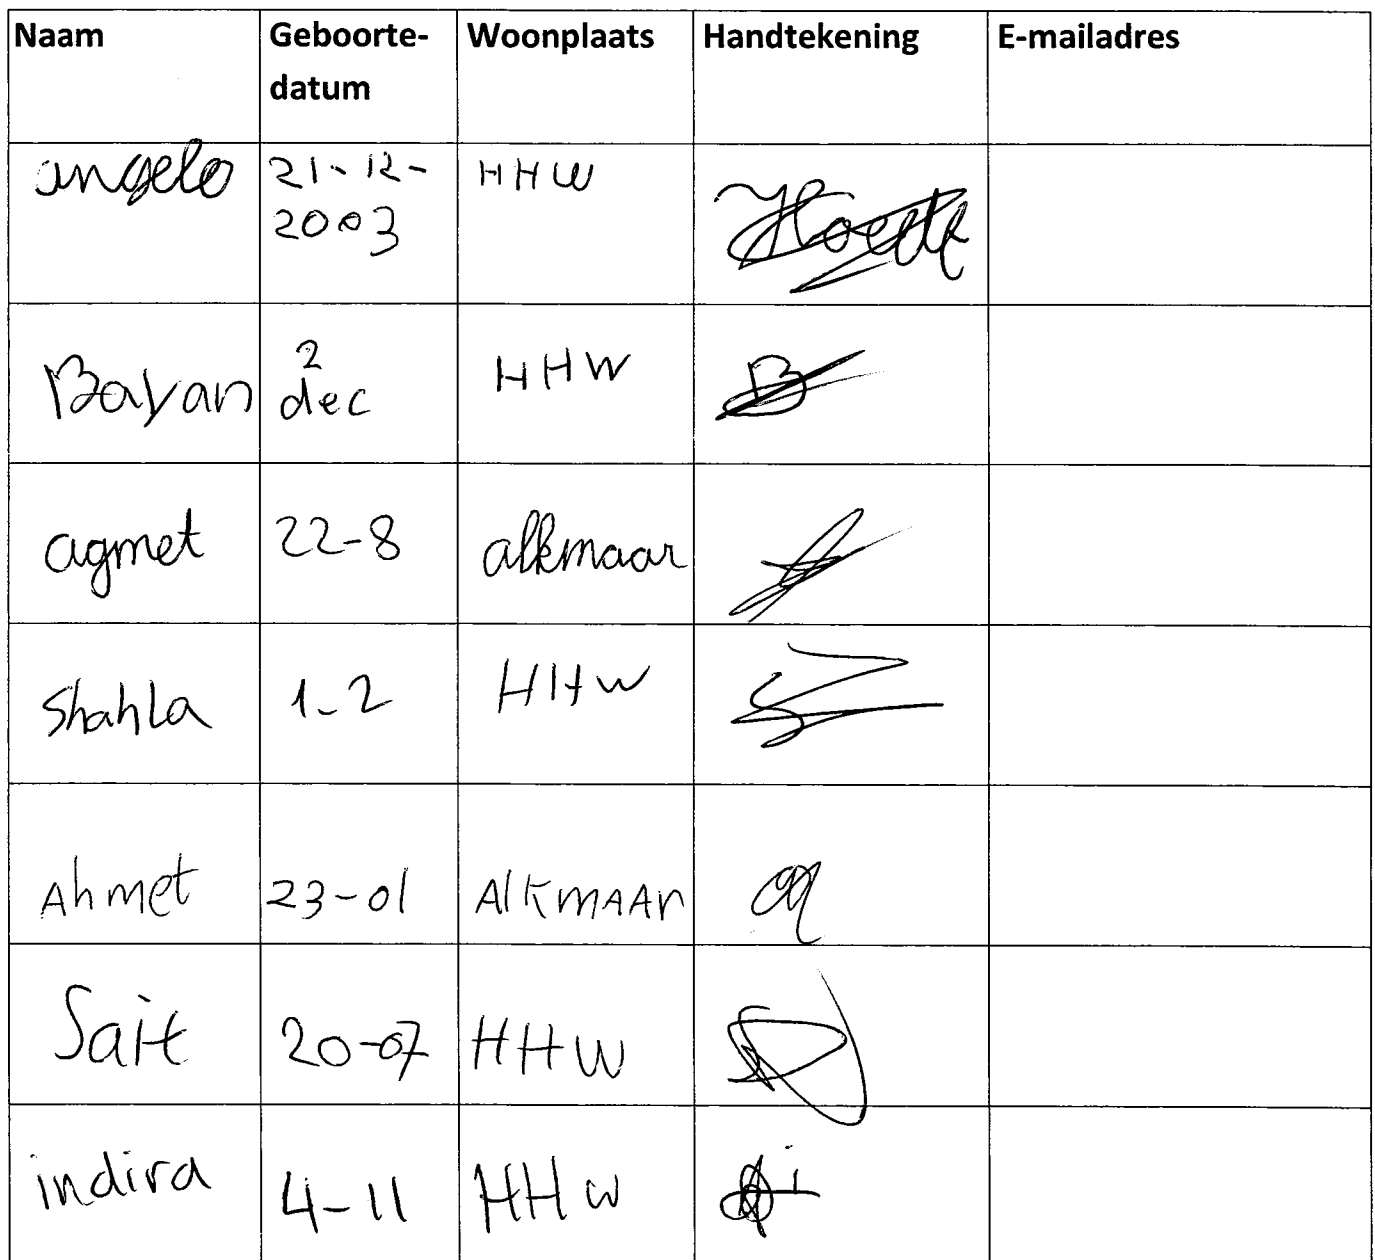 Naam Geboorte- Woonplaats Handtekening E-mailadres
datum
angelo 21-12- HHW
2003
Bayan 2 HHW
dec
agmet 22-8 alkmaar
Shahla 1-2 HHW
Ahmet 23-01 AlkmAAr
Sait 20-07 HHW
indira 4-11 HHW